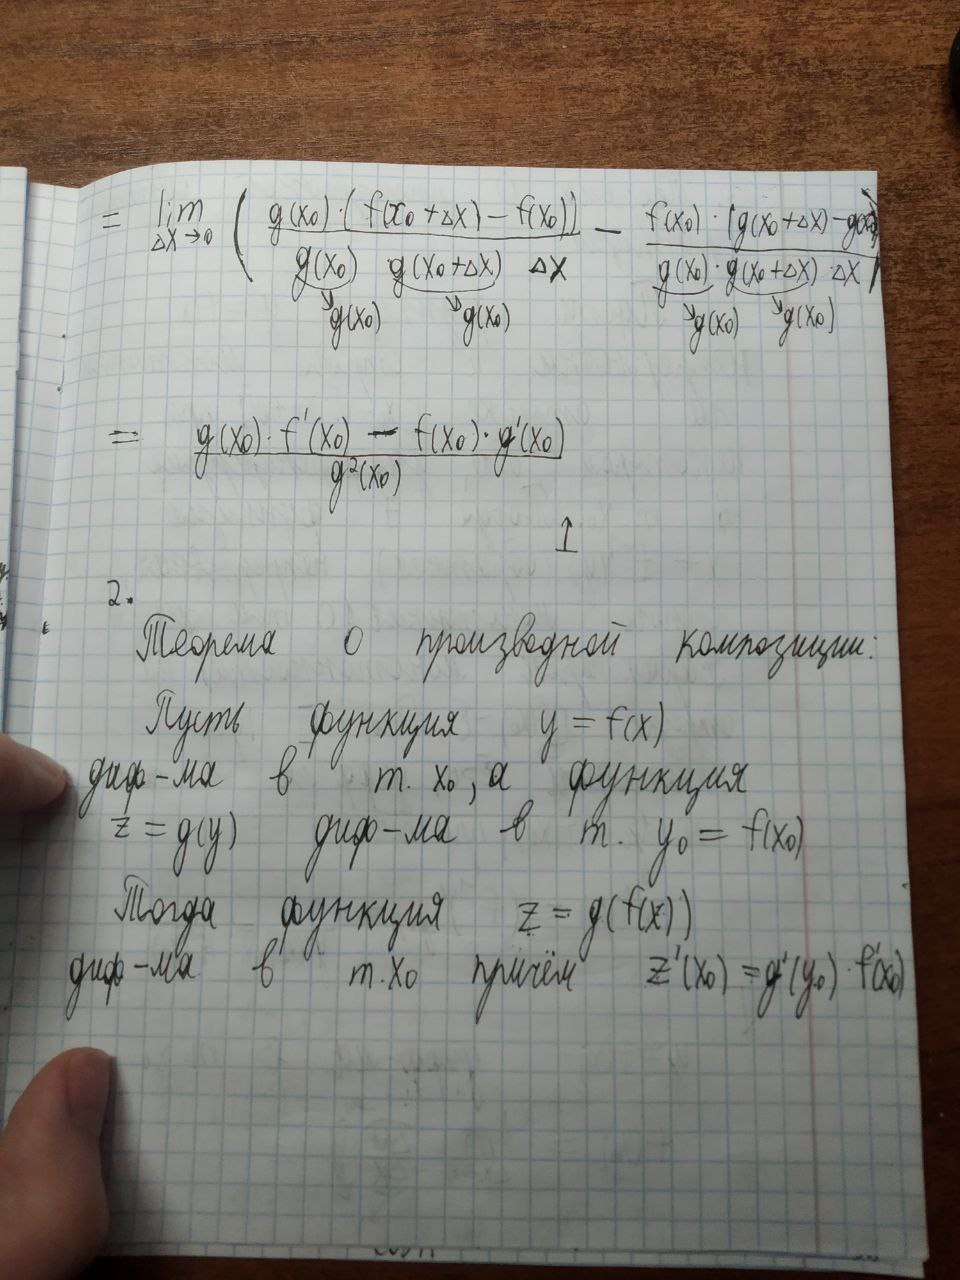 = lim Δx→0 ( g(x₀)·(f(x₀+Δx)−f(x₀)) / g(x₀) g(x₀+Δx) Δx − f(x₀)·(g(x₀+Δx)−g(x₀)) / g(x₀)·g(x₀+Δx)·Δx )
→g(x₀) →g(x₀) →g(x₀) →g(x₀)
= g(x₀)·f'(x₀) − f(x₀)·g'(x₀) / g²(x₀)
2.
Теорема о производной композиции:
Пусть функция y = f(x)
диф-ма в т. x₀, а функция
z = g(y) диф-ма в т. y₀ = f(x₀)
Тогда функция z = g(f(x))
диф-ма в т. x₀ причём z'(x₀) = g'(y₀)·f'(x₀)